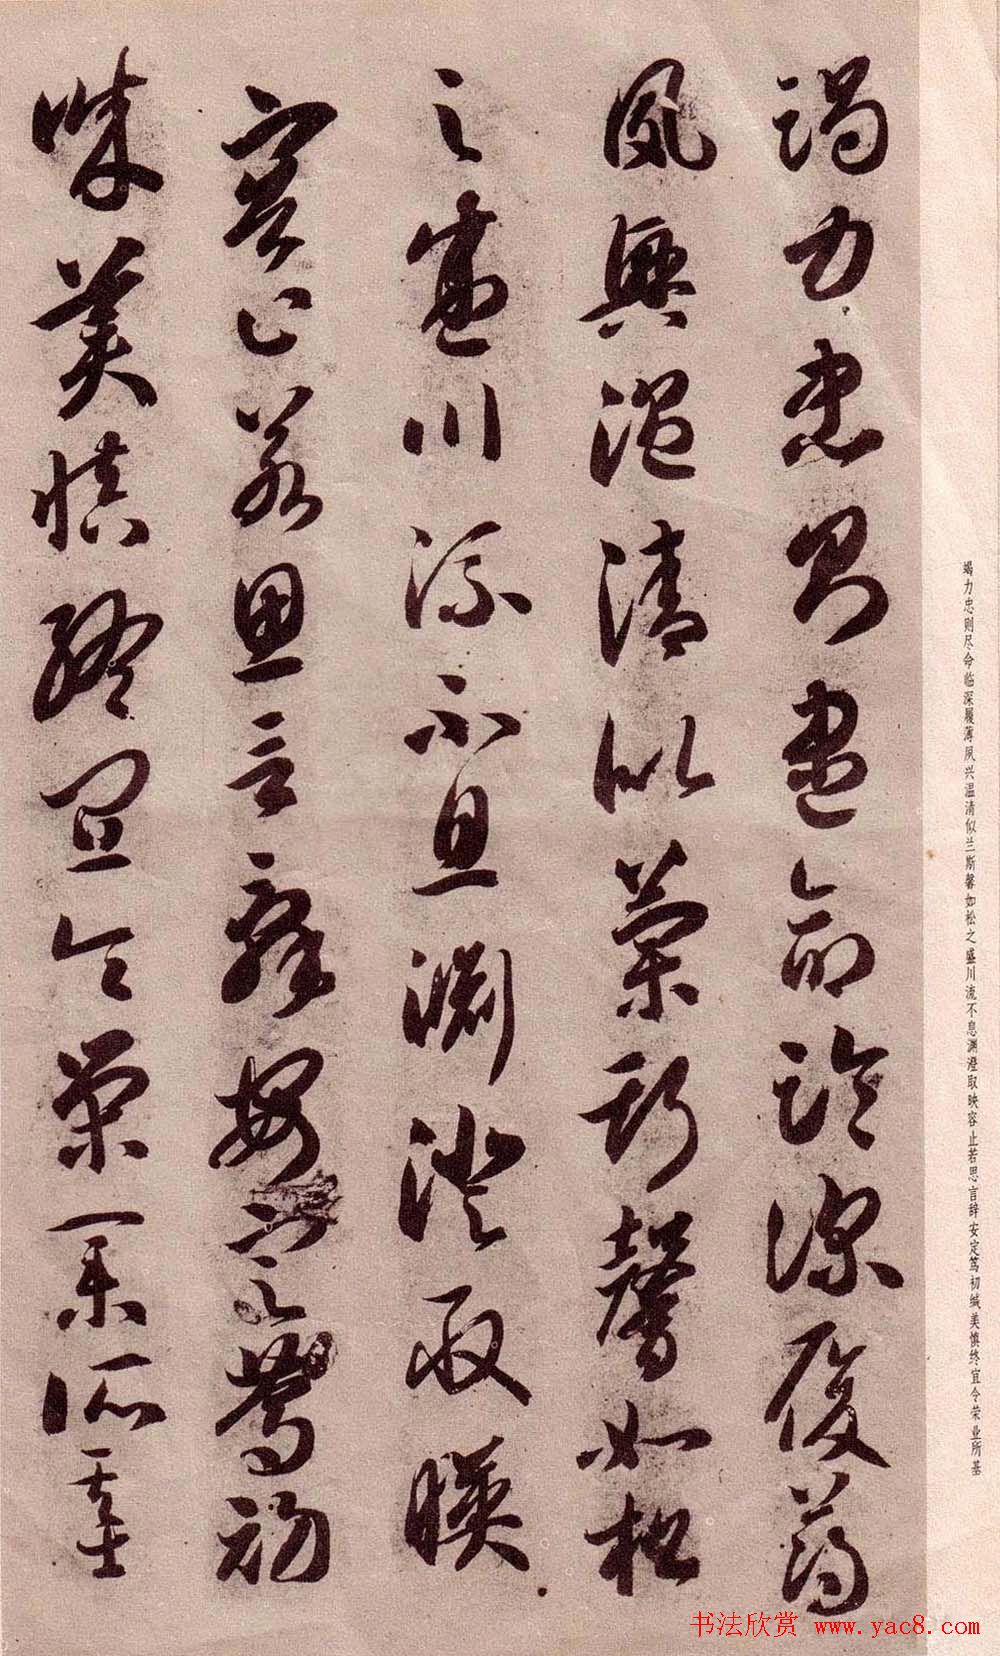 竭力忠则尽命临深履薄夙兴温清似兰斯馨如松之盛川流不息渊澄取映容止若思言辞安定笃初缄美慎终宜令荣业所基
竭力忠則盡命臨深履薄
夙興温清似蘭斯馨如松
之盛川流不息淵澄取暎
容止若思言辭安定篤初
誠美慎終宜令榮業所基
书法欣赏 www.yac8.com